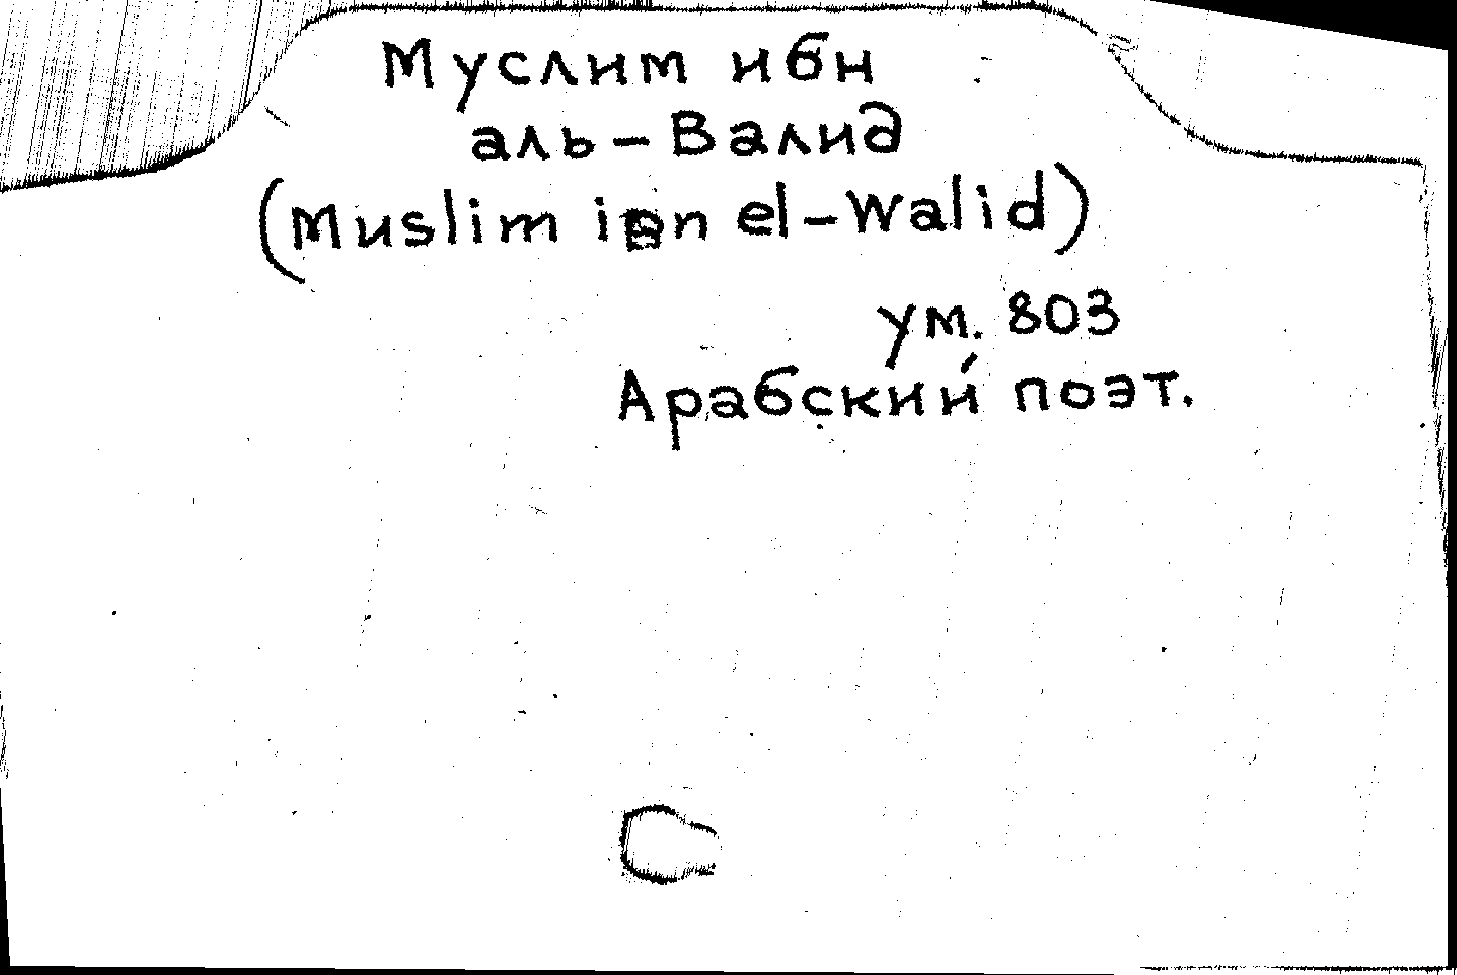 Муслим ибн
аль-Валид
(Muslim ibn el-Walid)
ум. 803
Арабский поэт.